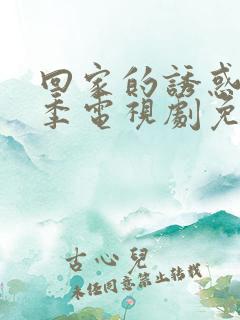 回家的誘惑
季電視劇免
古心兒
未经同意禁止转载